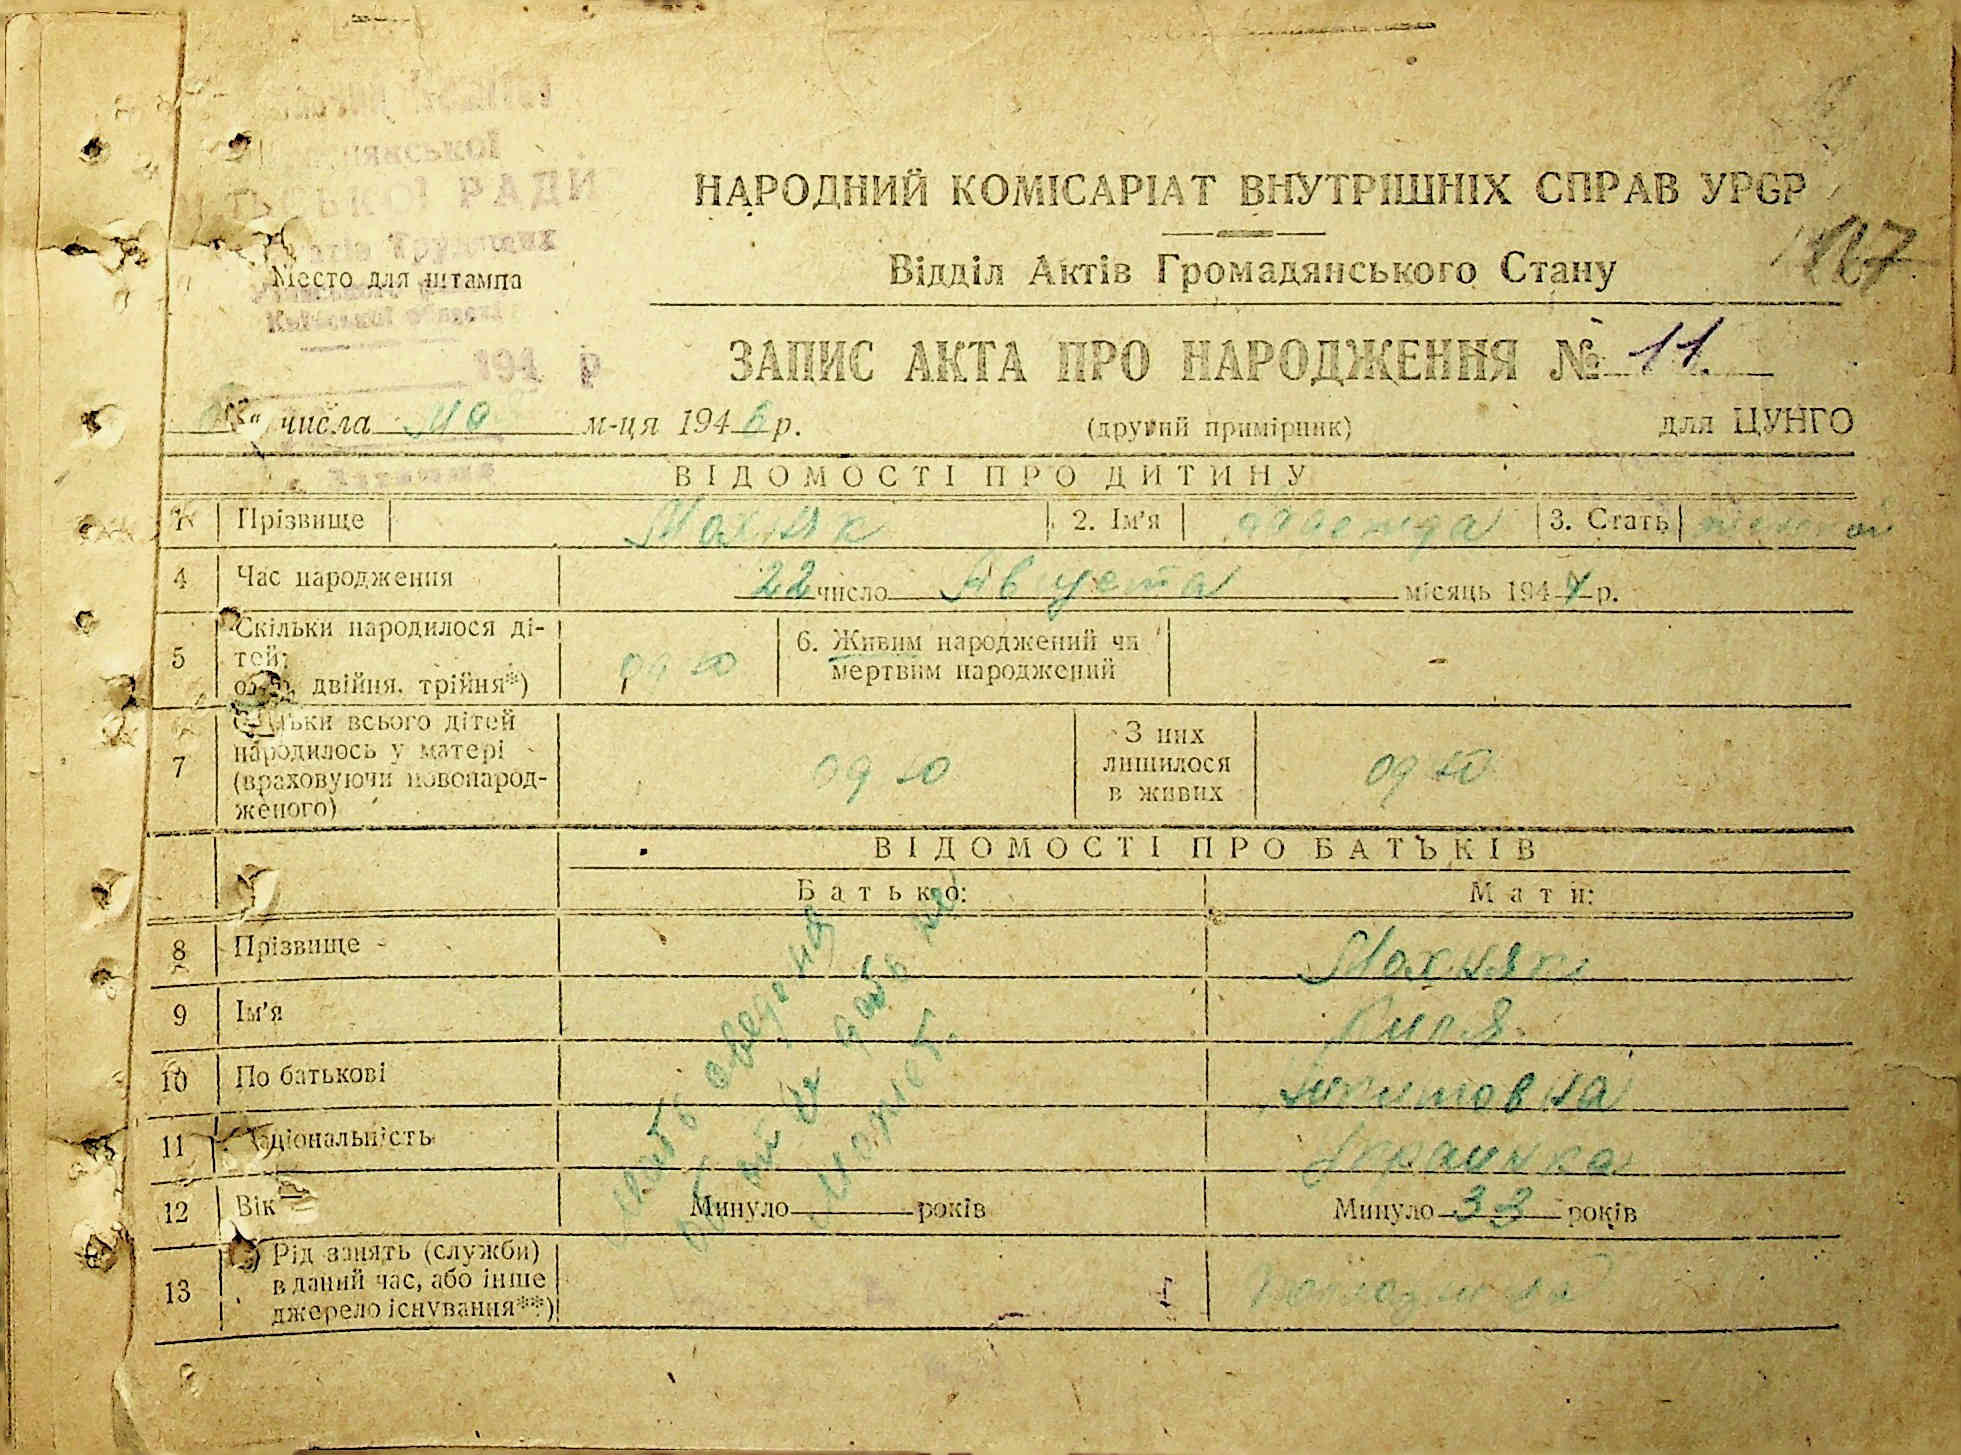 РАДИ
Место для штампа
194 р
НАРОДНИЙ КОМІСАРІАТ ВНУТРІШНІХ СПРАВ УРСР
Відділ Актів Громадянського Стану
ЗАПИС АКТА ПРО НАРОДЖЕННЯ № 11.
числа м-ця 1946 р.
(другий примірник)
для ЦУНГО
ВІДОМОСТІ ПРО ДИТИНУ
1 Прізвище Махняк 2. Ім'я 3. Стать женской
4 Час народження 22 число Августа місяць 1944 р.
5 Скільки народилося дітей: двійня, трійня*) одно 6. Живим народжений чи мертвим народжений -
7 Скільки всього дітей народилось у матері (враховуючи новонародженого) одно З них лишилося в живих одно
ВІДОМОСТІ ПРО БАТЬКІВ
Батько: Мати:
8 Прізвище Махняк
9 Ім'я
10 По батькові
11 Національність Украинка
12 Вік Минуло років Минуло 33 років
13 Рід занять (служби) в даний час, або інше джерело існування**)
мать сведений об отце дать не может.